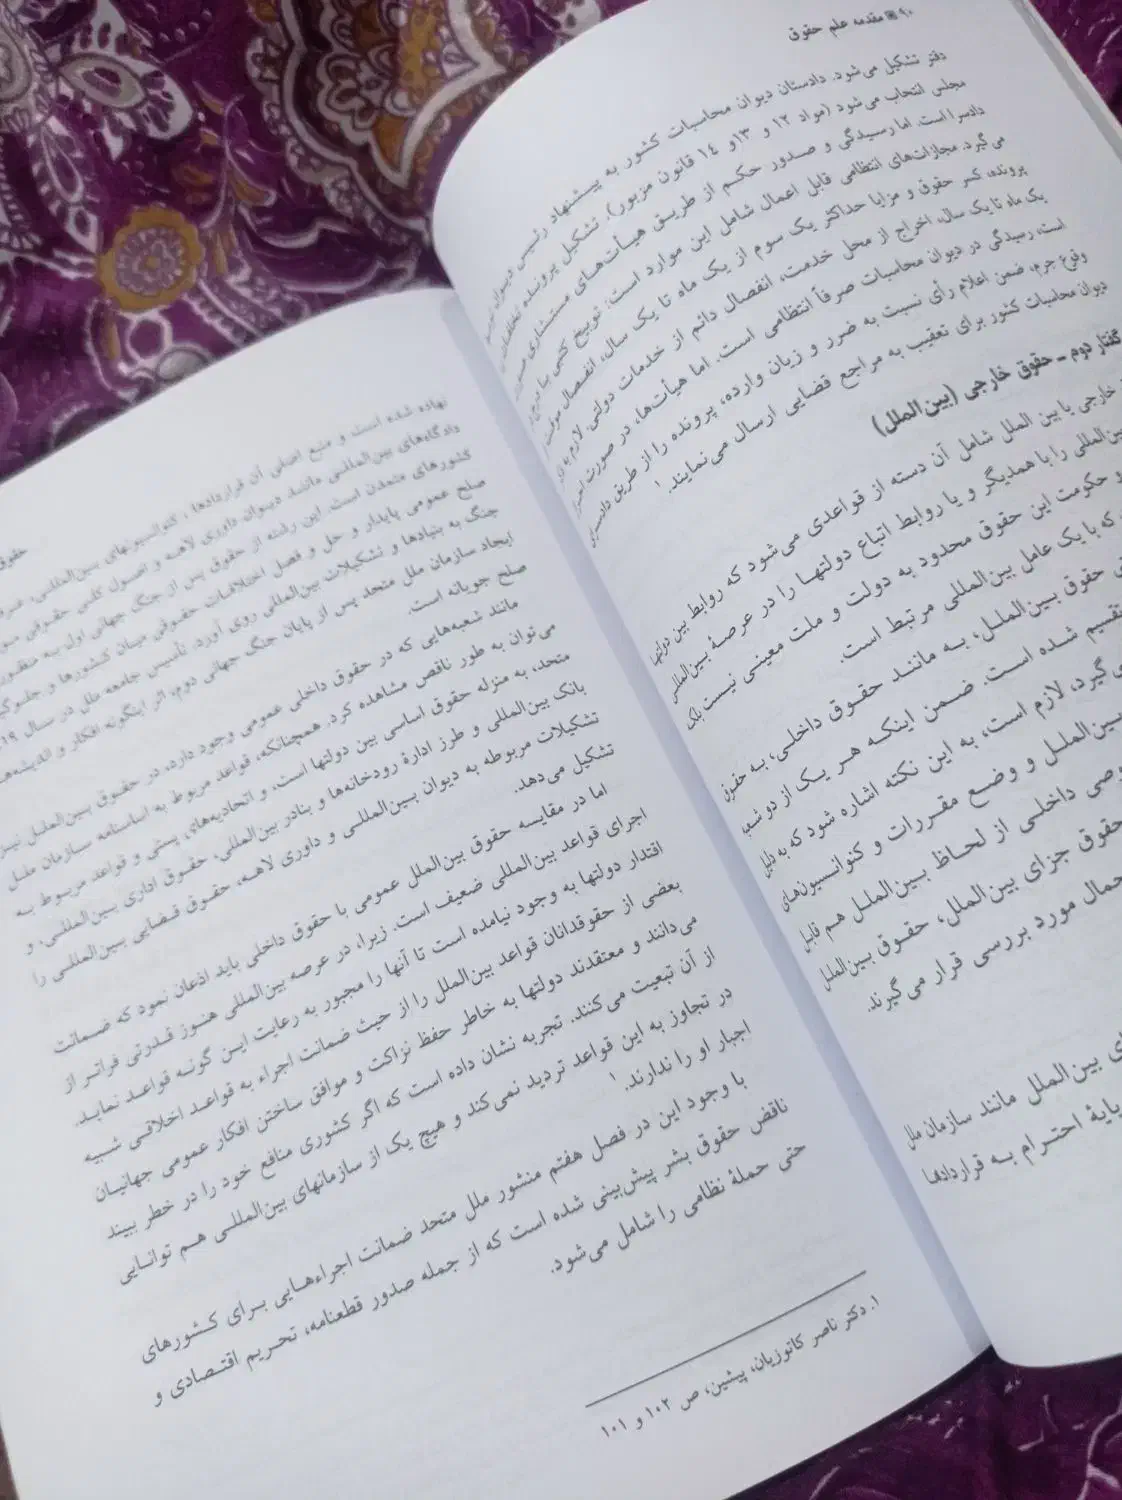 ۹۰ مقدمه علم حقوق
دفتر تشکیل می‌شود. دادستان دیوان محاسبات کشور به پیشنهاد رئیس دیوان
مجلس انتخاب می‌شود (مواد ۱۲ و ۱۳و ۱٤ قانون مزبور). تشکیل پرونده تخلفات
دادسرا است. اما رسیدگی و صدور حکم از طریق هیأت‌های مستشاری صورت
می‌گیرد. مجازات‌های انتظامی قابل اعمال شامل این موارد است: توبیخ کتبی با درج در
پرونده، کسر حقوق و مزایا حداکثر یک سوم از یک ماه تا یک سال، انفصال موقت از
یک ماه تا یک سال، اخراج از محل خدمت، انفصال دائم از خدمات دولتی. لازم به ذکر
است، رسیدگی در دیوان محاسبات صرفاً انتظامی است. اما هیأت‌ها، در صورت احراز
وقوع جرم، ضمن اعلام رأی نسبت به ضرر و زیان وارده، پرونده را از طریق دادسرای
دیوان محاسبات کشور برای تعقیب به مراجع قضایی ارسال می‌نمایند.۱
گفتار دوم ـ حقوق خارجی (بین‌الملل)
خارجی یا بین الملل شامل آن دسته از قواعدی می‌شود که روابط بین دولتها
بین‌المللی را با همدیگر و یا روابط اتباع دولتها را در عرصهٔ بین‌المللی
و حکومت این حقوق محدود به دولت و ملت معینی نیست بلکه
که با یک عامل بین‌المللی مرتبط است.
حقوق بین‌الملل، به مانند حقوق داخلی، به حقوق
تقسیم شده است. ضمن اینکه هر یک از دو شعبه
می‌گیرد، لازم است، به این نکته اشاره شود که به دلیل
بین‌الملل و وضع مقررات و کنوانسیون‌های
داخلی از لحاظ بین‌الملل هم قابل
حقوق جزای بین‌الملل، حقوق بین‌الملل
مورد بررسی قرار می‌گیرند.
بین‌الملل مانند سازمان ملل
پایهٔ احترام به قراردادها
حقوق
نهاده شده است و منبع اصلی آن قراردادها، کنوانسیونهای بین‌المللی، عرف
دادگاه‌های بین‌المللی مانند دیوان داوری لاهه و اصول کلی حقوقی
کشورهای متمدن است. این رشته از حقوق پس از جنگ جهانی اول به منظور
صلح عمومی پایدار و حل و فصل اختلافات حقوقی میان کشورها و جلوگیری
جنگ به بنیادها و تشکیلات بین‌المللی روی آورد. تأسیس جامعه ملل در سال
ایجاد سازمان ملل متحد پس از پایان جنگ جهانی دوم، اثر اینگونه افکار و اندیشه‌های
صلح جویانه است.
مانند شعبه‌هایی که در حقوق داخلی عمومی وجود دارد، در حقوق بین‌الملل نیز
می‌توان به طور ناقص مشاهده کرد. همچنانکه، قواعد مربوط به اساسنامه سازمان ملل
متحد، به منزله حقوق اساسی بین دولتها است، و اتحادیه‌های پستی و قواعد مربوط به
بانک بین‌المللی و طرز ادارهٔ رودخانه‌ها و بنادر بین‌المللی، حقوق اداری بین‌المللی، و
تشکیلات مربوطه به دیوان بین‌المللی و داوری لاهه، حقوق قضایی بین‌المللی را
تشکیل می‌دهد.
اما در مقایسه حقوق بین‌الملل عمومی با حقوق داخلی باید اذعان نمود که ضمانت
اجرای قواعد بین‌المللی ضعیف است. زیرا، در عرصه بین‌المللی هنوز قدرتی فراتر از
اقتدار دولتها به وجود نیامده است تا آنها را مجبور به رعایت این گونه قواعد نماید.
بعضی از حقوقدانان قواعد بین‌الملل را از حیث ضمانت اجراء به قواعد اخلاقی شبیه
می‌دانند و معتقدند دولتها به خاطر حفظ نزاکت و موافق ساختن افکار عمومی جهانیان
از آن تبعیت می‌کنند. تجربه نشان داده است که اگر کشوری منافع خود را در خطر ببیند
در تجاوز به این قواعد تردید نمی‌کند و هیچ یک از سازمانهای بین‌المللی هم توانایی
اجبار او را ندارند.۱
با وجود این در فصل هفتم منشور ملل متحد ضمانت اجراءهایی برای کشورهای
ناقض حقوق بشر پیش‌بینی شده است که از جمله صدور قطعنامه، تحریم اقتصادی و
حتی حملهٔ نظامی را شامل می‌شود.
۱. دکتر ناصر کاتوزیان، پیشین، ص ۱۰۲ و ۱۰۱